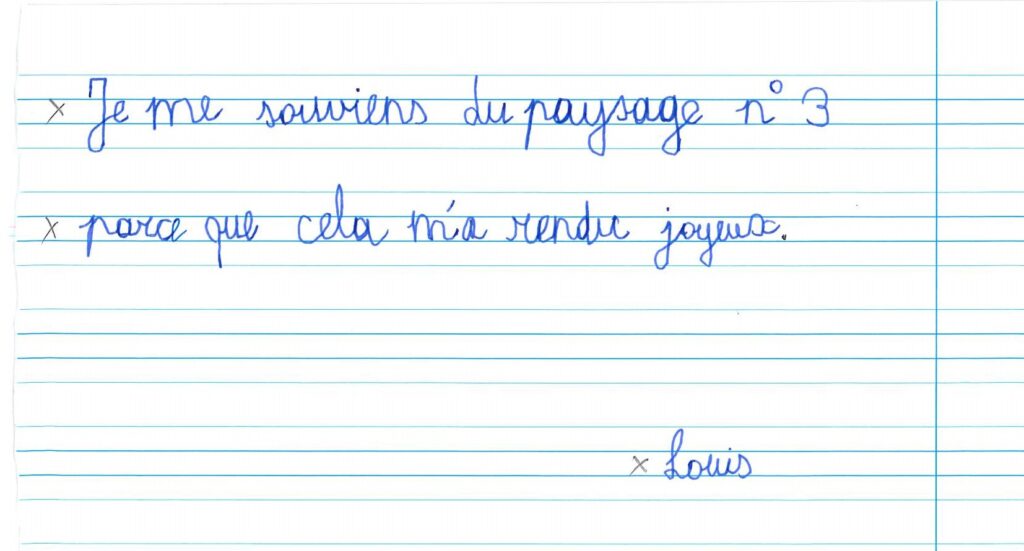 × Je me souviens du paysage n° 3
× parce que cela m'a rendu joyeux.
× Louis